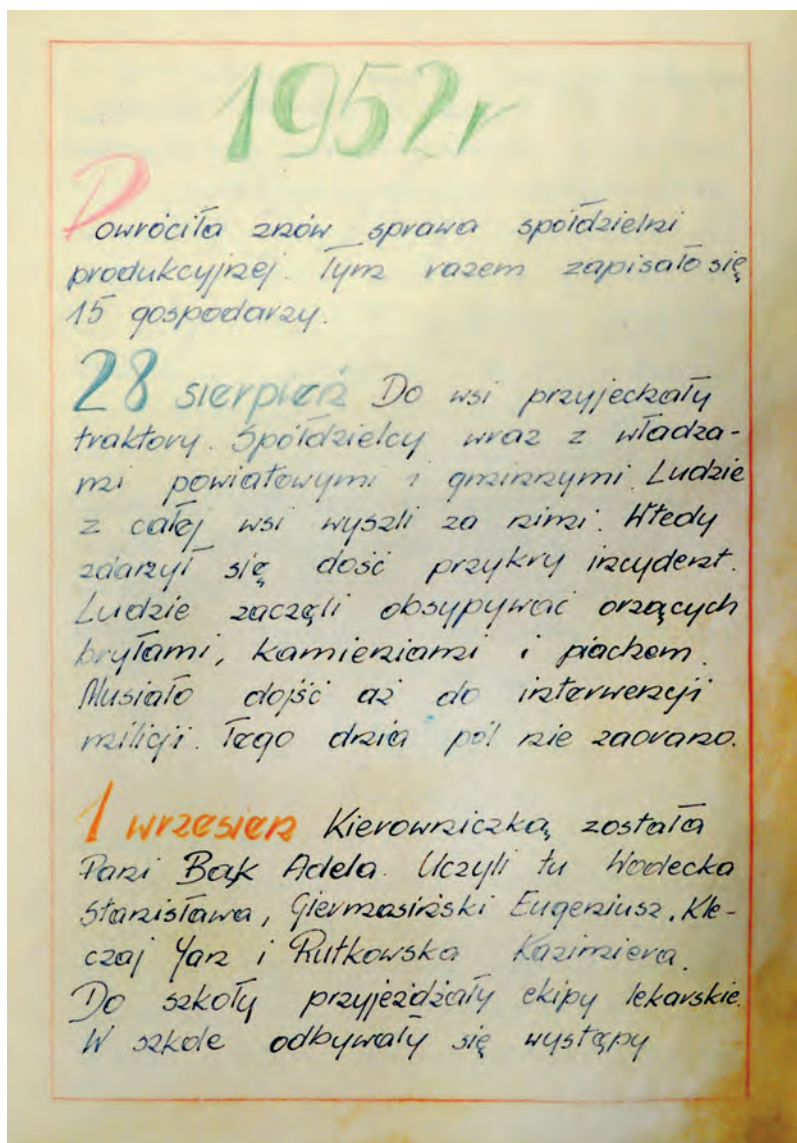 1952r
Powróciła znów sprawa spółdzielni
produkcyjnej. Tym razem zapisało się
15 gospodarzy.
28 sierpień Do wsi przyjechały
traktory. Spółdzielcy wraz z władza-
mi powiatowymi i gminnymi. Ludzie
z całej wsi wyszli za nimi. Wtedy
zdarzył się dość przykry incydent.
Ludzie zaczęli obsypywać orzących
bryłami, kamieniami i piachem.
Musiało dojść aż do interwencji
milicji. Tego dnia pól nie zaorano.
1 wrzesień Kierowniczką została
Pani Bąk Adela. Uczyli tu Wodecka
Stanisława, Giermasiński Eugeniusz, Kle-
czaj Jan i Rutkowska Kazimiera.
Do szkoły przyjeżdżały ekipy lekarskie.
W szkole odbywały się występy